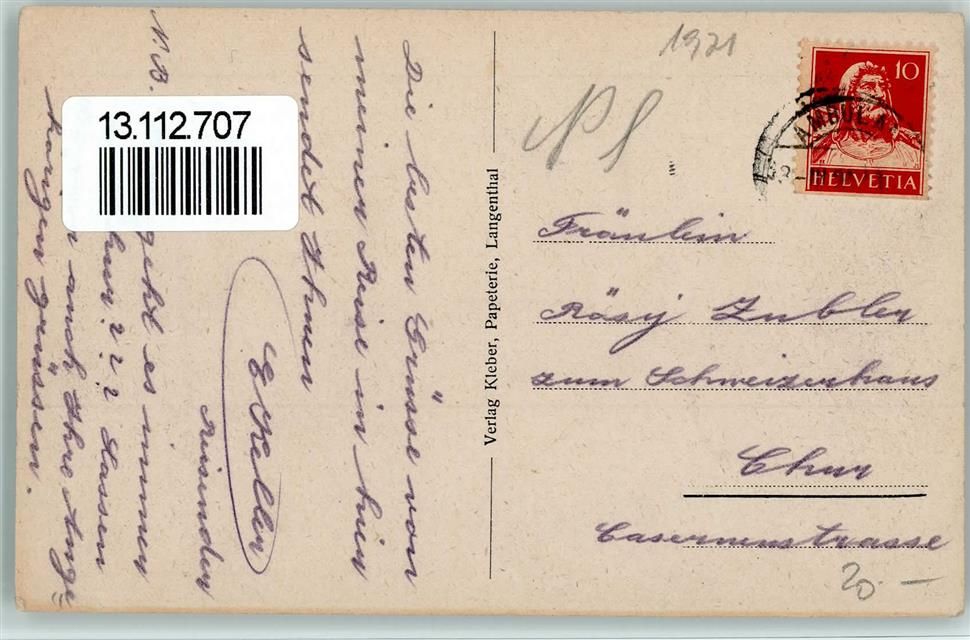 Die besten Grüsse von
meiner Reise in hier
sendet Ihnen
E. Keller
Reisender
N.B.
geht es immer
Chur ? ? ? Lassen
auch Ihre Ange=
hörigen grüssen.
13.112.707
Verlag Kleber, Papeterie, Langenthal
1921
10
AMBUL
HELVETIA
Fräulein
Rösy Zubler
zum Schweizerhaus
Chur
Casernenstrasse
20.—